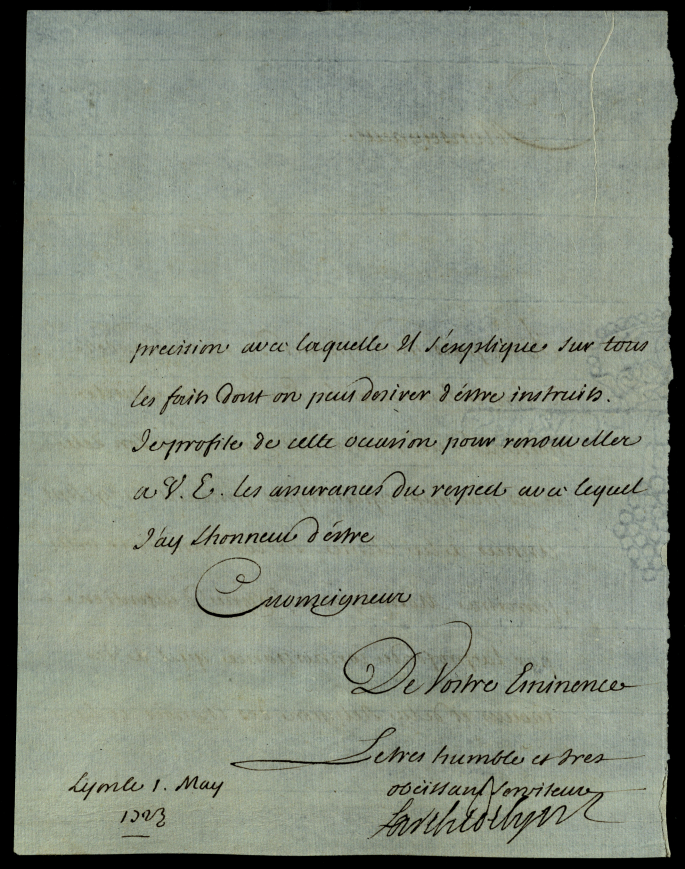 precision avec laquelle Il s'explique sur tous
les faits dont on peus desirer d'éstre instruits.
Je profite de cette occasion pour renouveller
a V. E. les assurances du respect avec lequel
J'ay Lhonneur d'éstre
Monseigneur
De Vostre Eminence
Le tres humble et tres
obeissant serviteur
Lyon le 1. May
1723